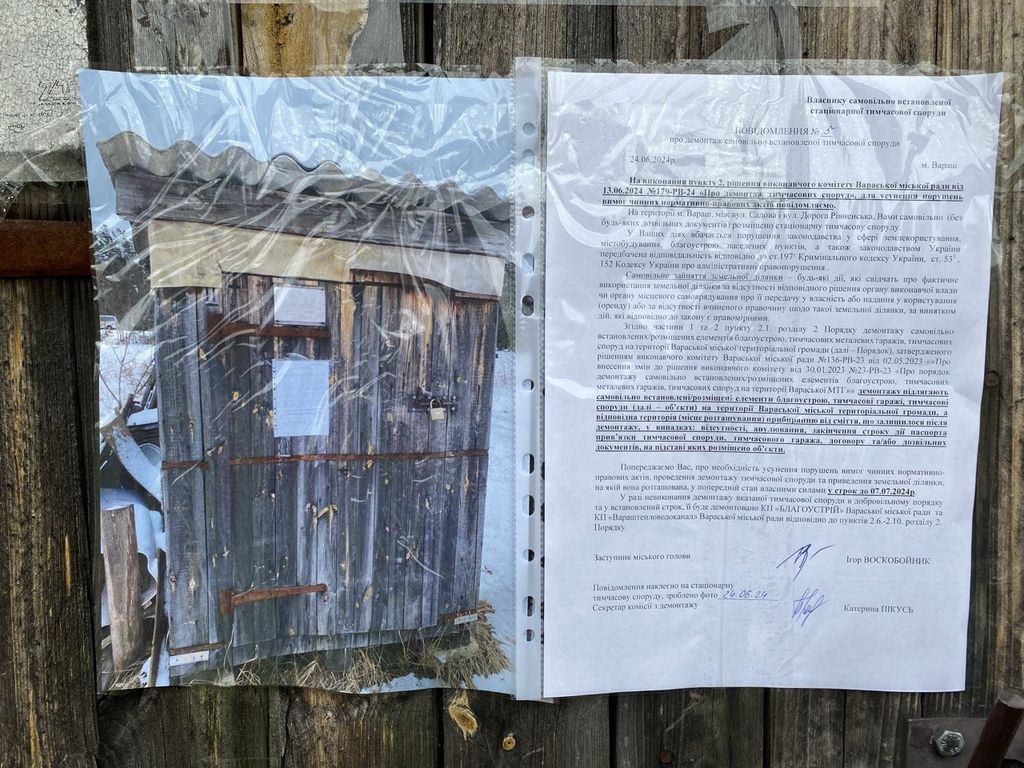 Власнику самовільно встановленої
стаціонарної тимчасової споруди
ПОВІДОМЛЕННЯ № 5
про демонтаж самовільно встановленої тимчасової споруди
24.06.2024р.
м. Вараш
На виконання пункту 2, рішення виконавчого комітету Вараської міської ради від
13.06.2024 №179-РВ-24 «Про демонтаж тимчасових споруд», для усунення порушень
вимог чинних нормативно-правових актів повідомляємо.
На території м. Вараш, між вул. Садова і вул. Дорога Рівненська, Вами самовільно (без
будь-яких дозвільних документів) розміщено стаціонарну тимчасову споруду.
У Ваших діях вбачається порушення законодавства у сфері землекористування,
містобудування, благоустрою населених пунктів, а також законодавством України
передбачена відповідальність відповідно до ст.197¹ Кримінального кодексу України, ст. 53¹,
152 Кодексу України про адміністративні правопорушення .
Самовільне зайняття земельної ділянки – будь-які дії, які свідчать про фактичне
використання земельної ділянки за відсутності відповідного рішення органу виконавчої влади
чи органу місцевого самоврядування про її передачу у власність або надання у користування
(оренду) або за відсутності вчиненого правочину щодо такої земельної ділянки, за винятком
дій, які відповідно до закону є правомірними.
Згідно частини 1 та 2 пункту 2.1. розділу 2 Порядку демонтажу самовільно
встановлених/розміщених елементів благоустрою, тимчасових металевих гаражів, тимчасових
споруд на території Вараської міської територіальної громади (далі – Порядок), затвердженого
рішенням виконавчого комітету Вараської міської ради №136-РВ-23 від 02.05.2023 ««Про
внесення змін до рішення виконавчого комітету від 30.01.2023 №23-РВ-23 «Про порядок
демонтажу самовільно встановлених/розміщених елементів благоустрою, тимчасових
металевих гаражів, тимчасових споруд на території Вараської МТГ»» демонтажу підлягають
самовільно встановлені/розміщені елементи благоустрою, тимчасові гаражі, тимчасові
споруди (далі – об'єкти) на території Вараської міської територіальної громади, а
відповідна територія (місце розташування) прибиранню від сміття, що залишилося після
демонтажу, у випадках: відсутності, анулювання, закінчення строку дії паспорта
прив'язки тимчасової споруди, тимчасового гаража, договору та/або дозвільних
документів, на підставі яких розміщено об'єкти.
Попереджаємо Вас, про необхідність усунення порушень вимог чинних нормативно-
правових актів, проведення демонтажу тимчасової споруди та приведення земельної ділянки,
на якій вона розташована, у попередній стан власними силами у строк до 07.07.2024р.
У разі невиконання демонтажу вказаної тимчасової споруди в добровільному порядку
та у встановлений строк, її буде демонтовано КП «БЛАГОУСТРІЙ» Вараської міської ради та
КП «Вараштепловодоканал» Вараської міської ради відповідно до пунктів 2.6.-2.10. розділу 2.
Порядку.
Заступник міського голови
Ігор ВОСКОБОЙНИК
Повідомлення наклеєно на стаціонарну
тимчасову споруду, зроблено фото 24.06.24
Секретар комісії з демонтажу
Катерина ПІКУСЬ